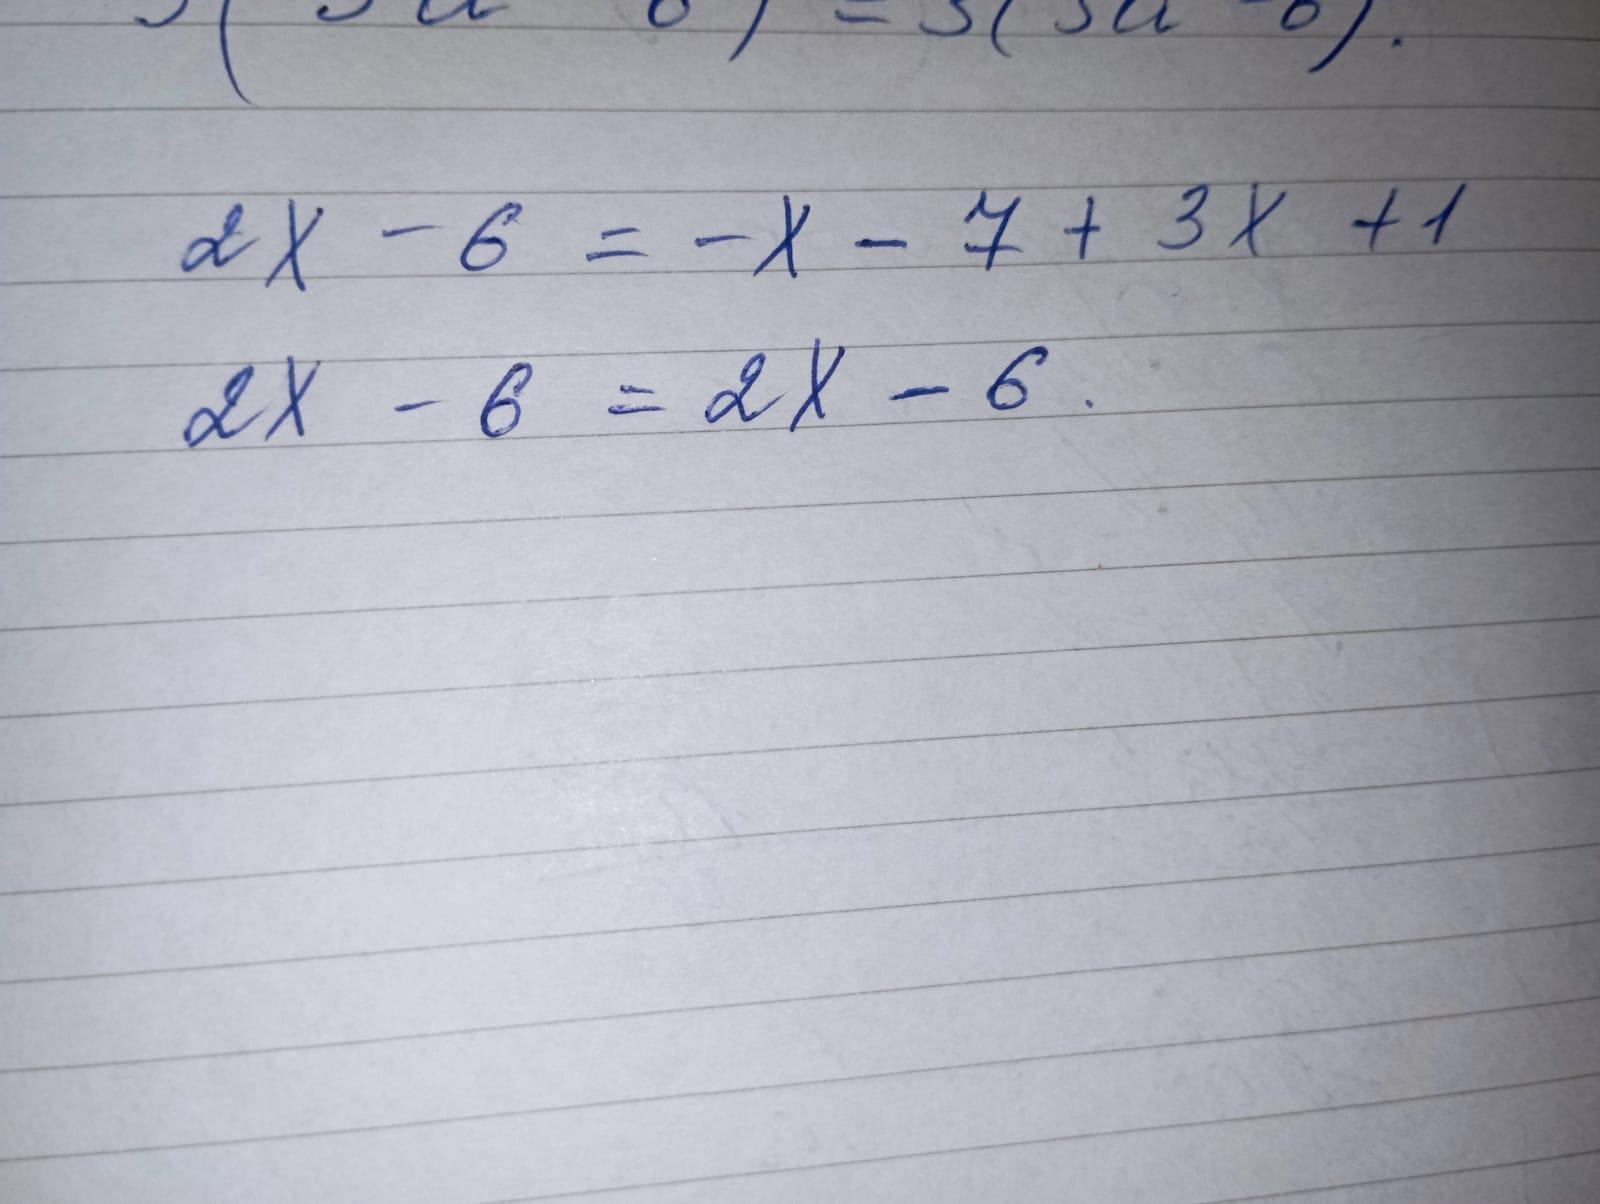 = 3(3a - b).
2x - 6 = -x - 7 + 3x + 1
2x - 6 = 2x - 6.